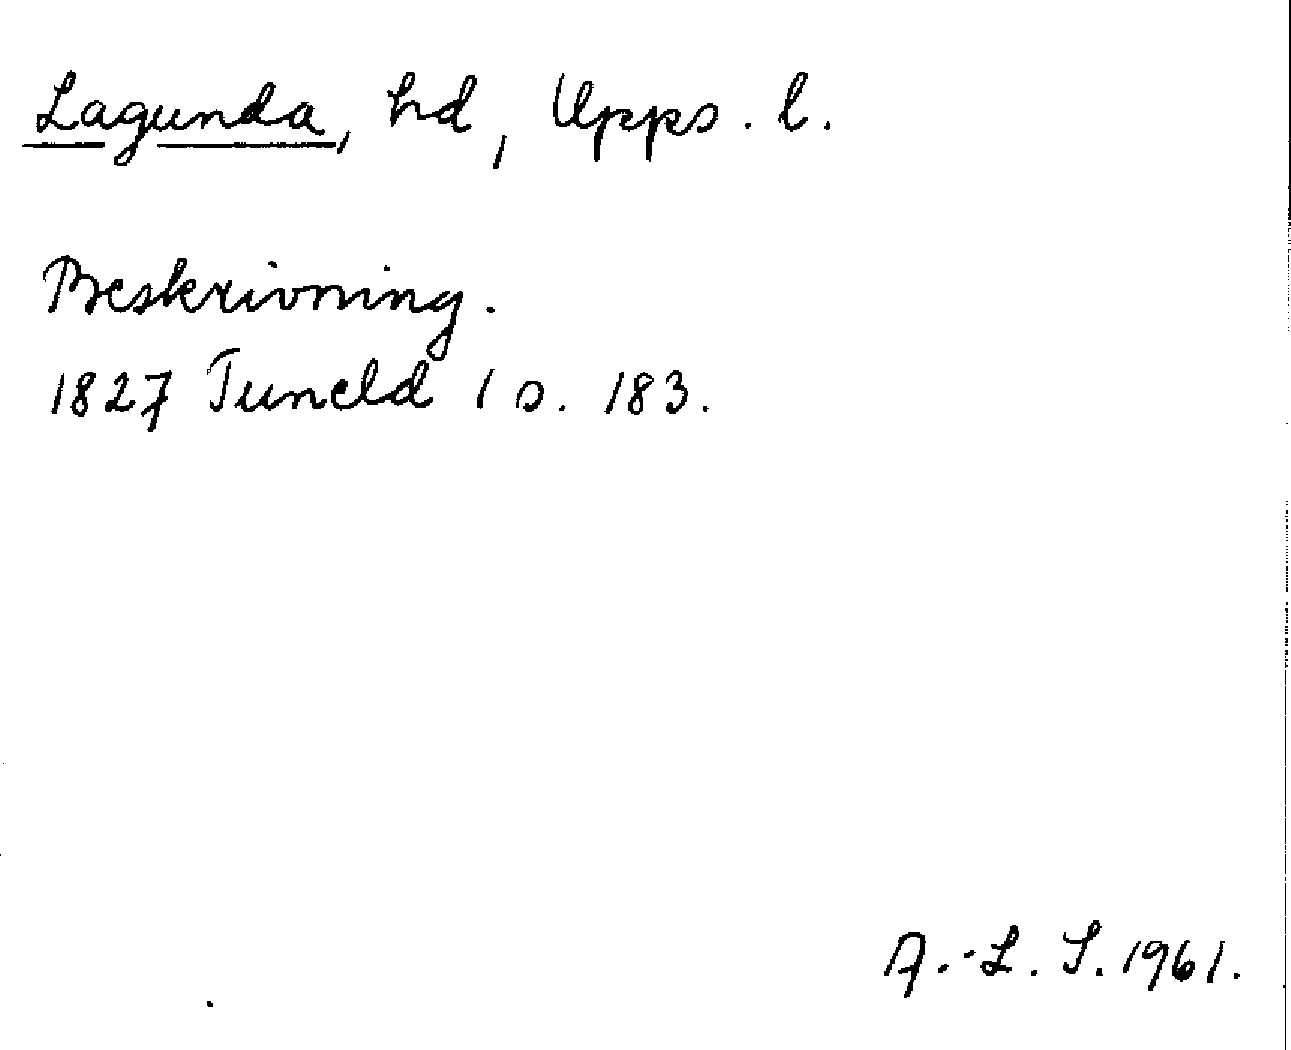 Lagunda, hd, Upps. l.
Beskrivning.
1827 Tuneld 1 s. 183.
A.-L. S. 1961.